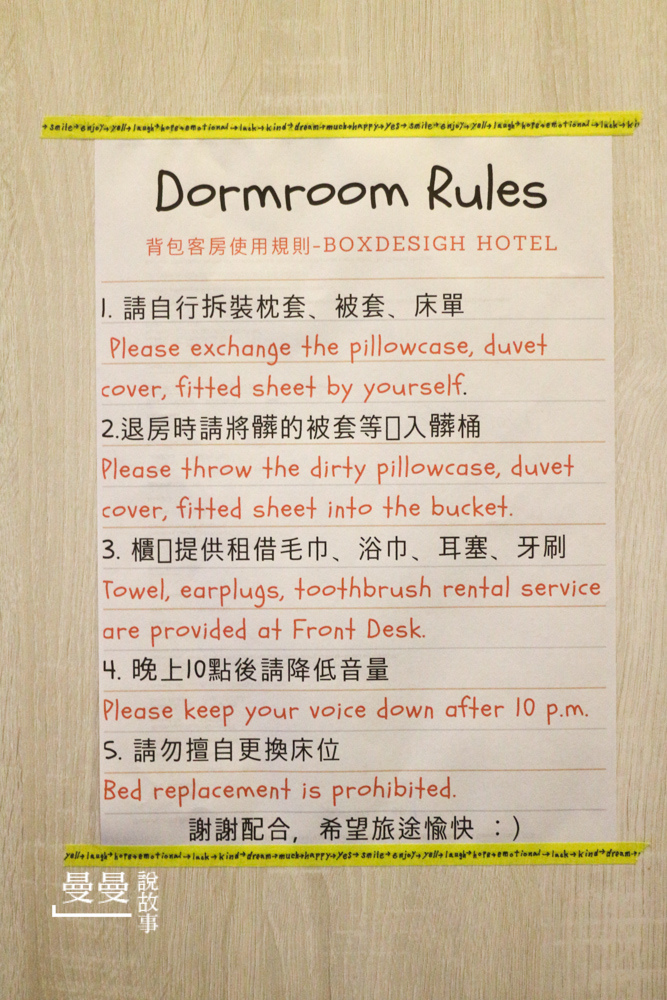 smile enjoy yell laugh hate emotional luck kind dream much happy yes smile enjoy yell laugh hate emotional luck
Dormroom Rules
背包客房使用規則-BOXDESIGH HOTEL
1. 請自行拆裝枕套、被套、床單
Please exchange the pillowcase, duvet
cover, fitted sheet by yourself.
2.退房時請將髒的被套等▯入髒桶
Please throw the dirty pillowcase, duvet
cover, fitted sheet into the bucket.
3. 櫃▯提供租借毛巾、浴巾、耳塞、牙刷
Towel, earplugs, toothbrush rental service
are provided at Front Desk.
4. 晚上10點後請降低音量
Please keep your voice down after 10 p.m.
5. 請勿擅自更換床位
Bed replacement is prohibited.
謝謝配合, 希望旅途愉快 :)
yell laugh hate emotional luck kind dream much happy yes smile enjoy yell laugh hate emotional luck kind dream
曼曼說故事